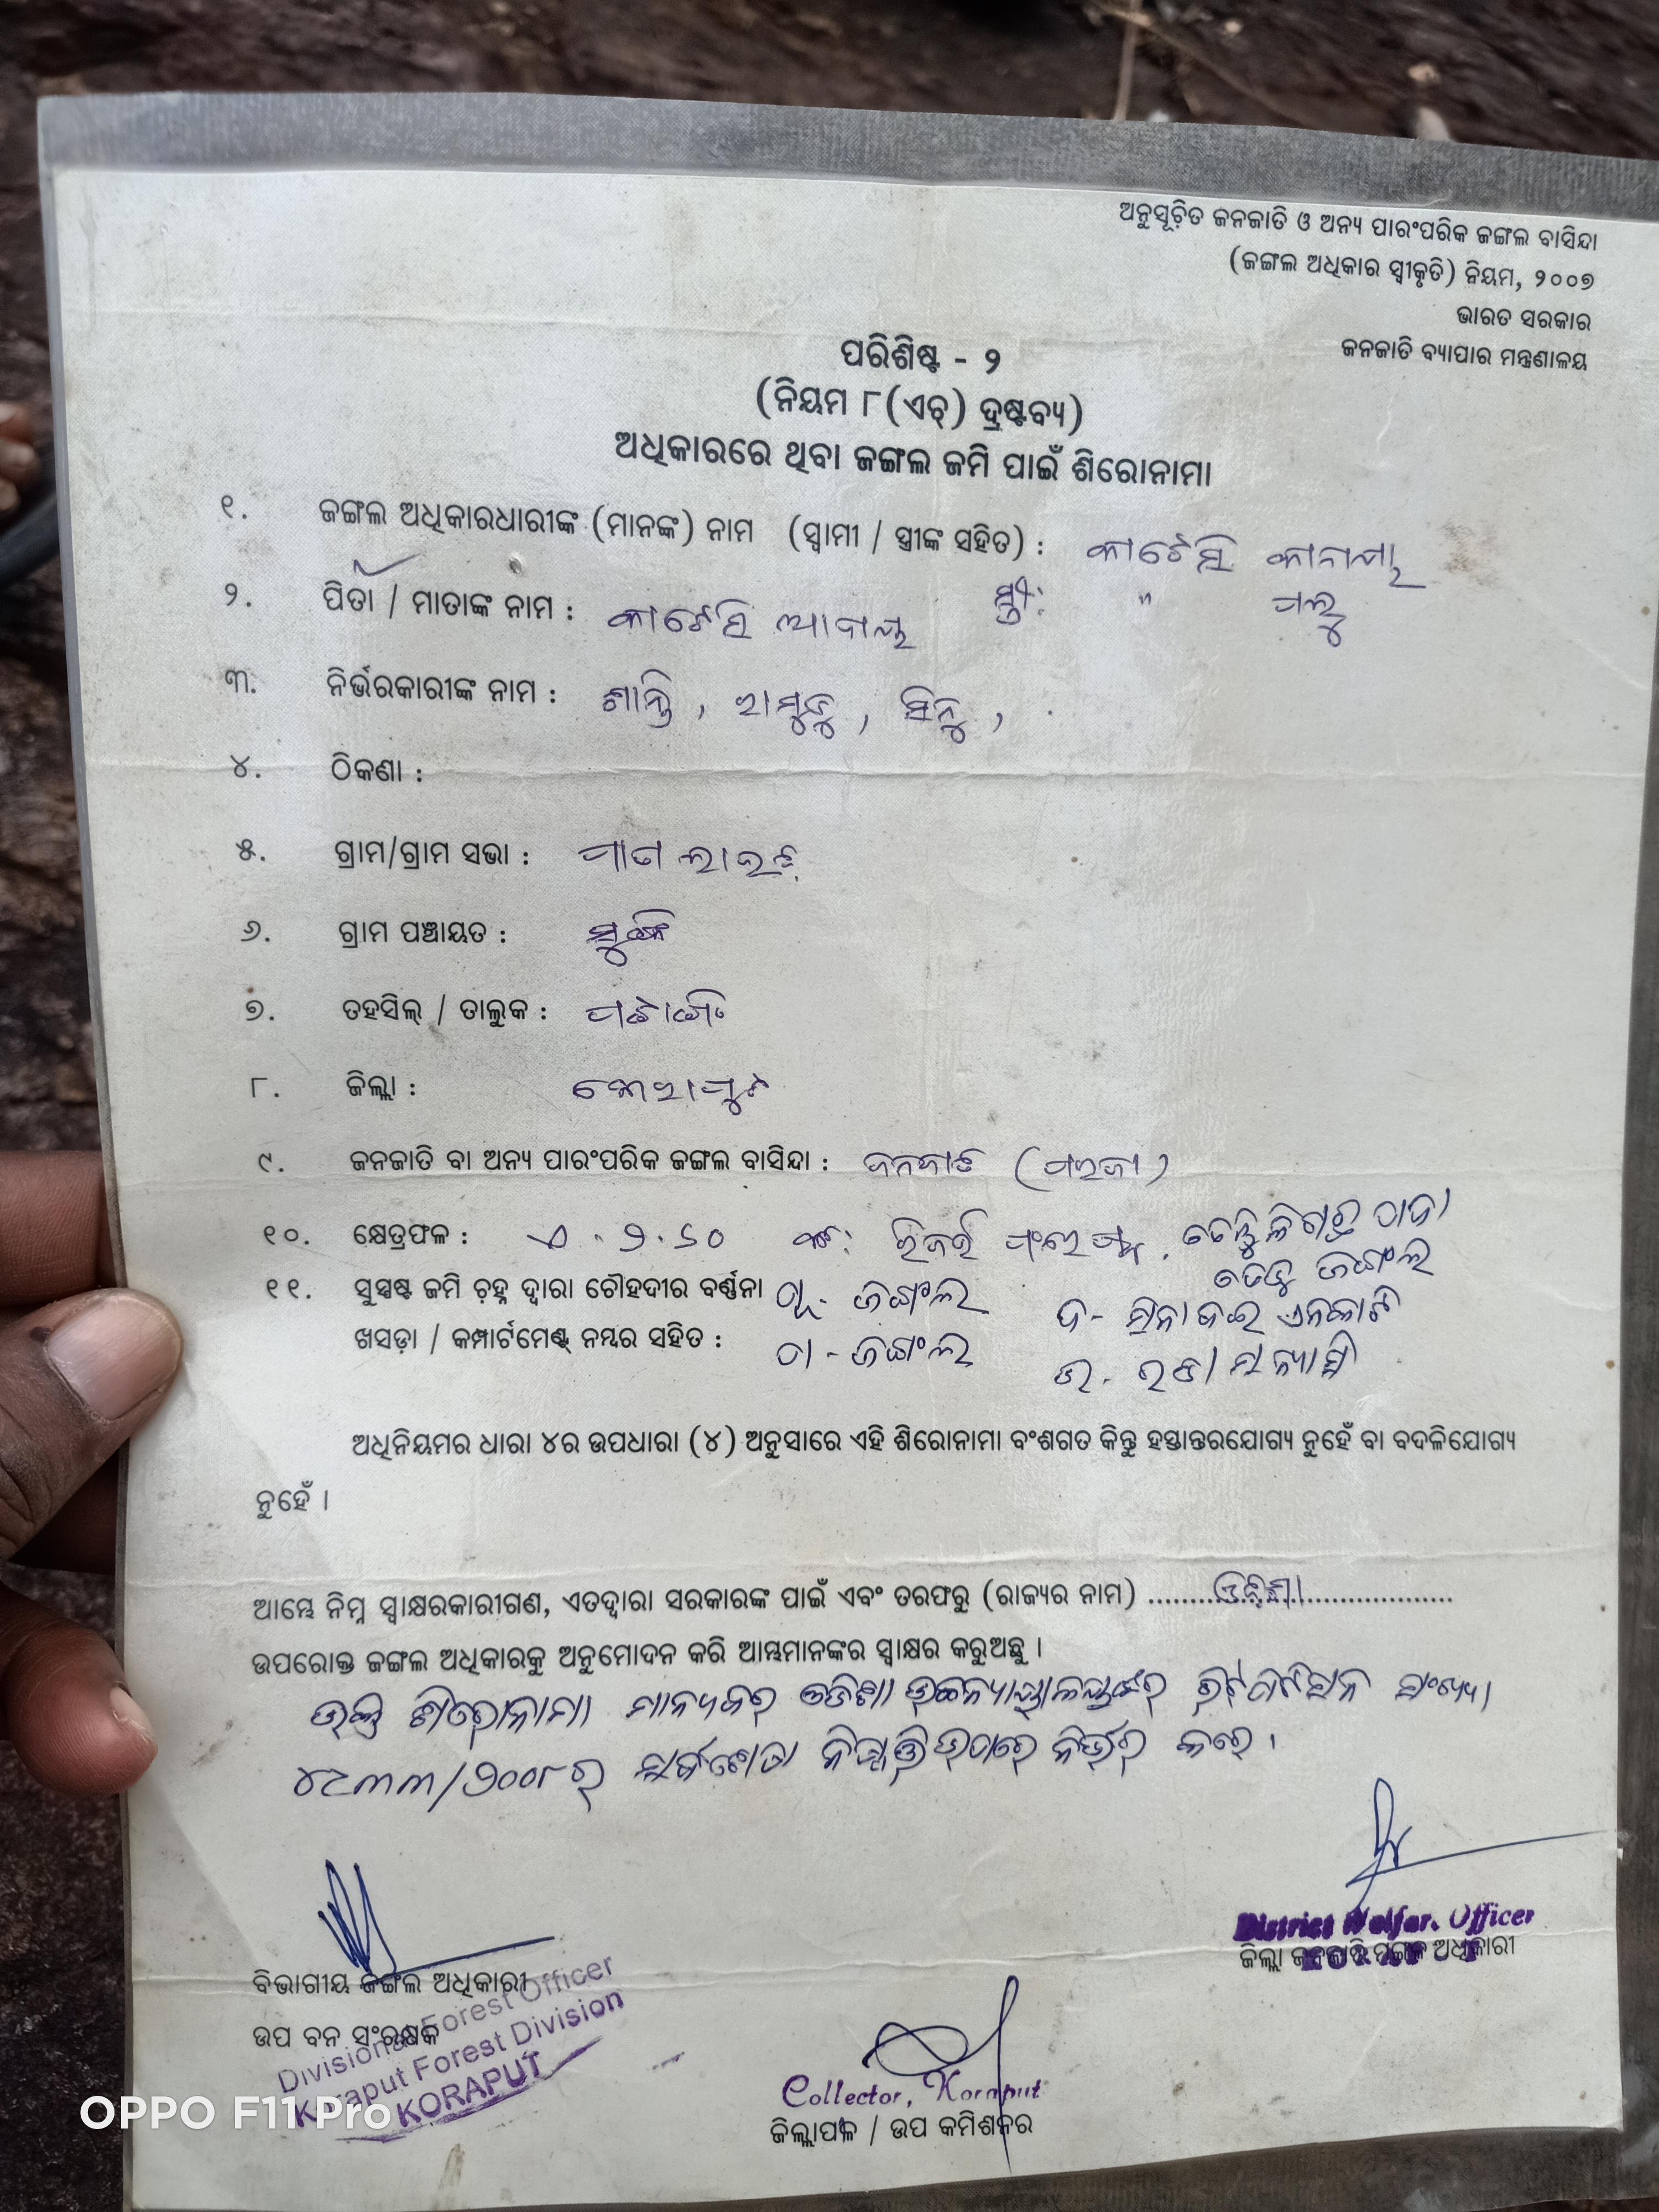 ଅନୁସୂଚିତ ଜନଜାତି ଓ ଅନ୍ୟ ପାରଂପରିକ ଜଙ୍ଗଲ ବାସିନ୍ଦା
(ଜଙ୍ଗଲ ଅଧିକାର ସ୍ୱୀକୃତି) ନିୟମ, ୨୦୦୭
ଭାରତ ସରକାର
ଜନଜାତି ବ୍ୟାପାର ମନ୍ତ୍ରଣାଳୟ
ପରିଶିଷ୍ଟ - ୨
(ନିୟମ ୮(ଏଚ୍) ଦ୍ରଷ୍ଟବ୍ୟ)
ଅଧିକାରରେ ଥିବା ଜଙ୍ଗଲ ଜମି ପାଇଁ ଶିରୋନାମା
୧. ଜଙ୍ଗଲ ଅଧିକାରଧାରୀଙ୍କ (ମାନଙ୍କ) ନାମ (ସ୍ୱାମୀ / ସ୍ତ୍ରୀଙ୍କ ସହିତ) :
୨. ପିତା / ମାତାଙ୍କ ନାମ : ସ୍ତ୍ରୀ: "
୩. ନିର୍ଭରକାରୀଙ୍କ ନାମ : ଶାନ୍ତି,
୪. ଠିକଣା :
୫. ଗ୍ରାମ/ଗ୍ରାମ ସଭା :
୬. ଗ୍ରାମ ପଞ୍ଚାୟତ : ସୁଙ୍କି
୭. ତହସିଲ୍ / ତାଲୁକ : ପଟାଙ୍ଗି
୮. ଜିଲ୍ଲା : କୋରାପୁଟ
୯. ଜନଜାତି ବା ଅନ୍ୟ ପାରଂପରିକ ଜଙ୍ଗଲ ବାସିନ୍ଦା : ଜନଜାତି (ପରଜା)
୧୦. କ୍ଷେତ୍ରଫଳ : ଏ.
୧୧. ସୁସ୍ପଷ୍ଟ ଜମି ଚିହ୍ନ ଦ୍ୱାରା ଚୌହଦୀର ବର୍ଣ୍ଣନା ପୂ- ଜଙ୍ଗଲ ଦ-
ଖସଡ଼ା / କମ୍ପାର୍ଟମେଣ୍ଟ୍ ନମ୍ବର ସହିତ : ପ - ଜଙ୍ଗଲ ଉ-
ଅଧିନିୟମର ଧାରା ୪ର ଉପଧାରା (୪) ଅନୁସାରେ ଏହି ଶିରୋନାମା ବଂଶଗତ କିନ୍ତୁ ହସ୍ତାନ୍ତରଯୋଗ୍ୟ ନୁହେଁ ବା ବଦଳିଯୋଗ୍ୟ
ନୁହେଁ ।
ଆମ୍ଭେ ନିମ୍ନ ସ୍ୱାକ୍ଷରକାରୀଗଣ, ଏତଦ୍ୱାରା ସରକାରଙ୍କ ପାଇଁ ଏବଂ ତରଫରୁ (ରାଜ୍ୟର ନାମ) ........ଓଡ଼ିଶା........
ଉପରୋକ୍ତ ଜଙ୍ଗଲ ଅଧିକାରକୁ ଅନୁମୋଦନ କରି ଆମ୍ଭମାନଙ୍କର ସ୍ୱାକ୍ଷର କରୁଅଛୁ ।
ଉକ୍ତ ଶିରୋନାମା ମାନ୍ୟବର ଓଡିଶା ଉଚ୍ଚନ୍ୟାୟାଳୟଙ୍କର ରିଟପିଟିସନ ସଂଖ୍ୟା
୪୯୩୩/୨୦୦୮ର ନିଷ୍ପତ୍ତି ଉପରେ ନିର୍ଭର କରେ ।
District Welfare Officer
ଜିଲ୍ଲା ଜନଜାତି ମଙ୍ଗଳ ଅଧିକାରୀ
ବିଭାଗୀୟ ଜଙ୍ଗଲ ଅଧିକାରୀ
ଉପ ବନ ସଂରକ୍ଷକ
Divisional Forest Officer
Koraput Forest Division
KORAPUT
Collector, Koraput
ଜିଲ୍ଲାପାଳ / ଉପ କମିଶନର
OPPO F11 Pro